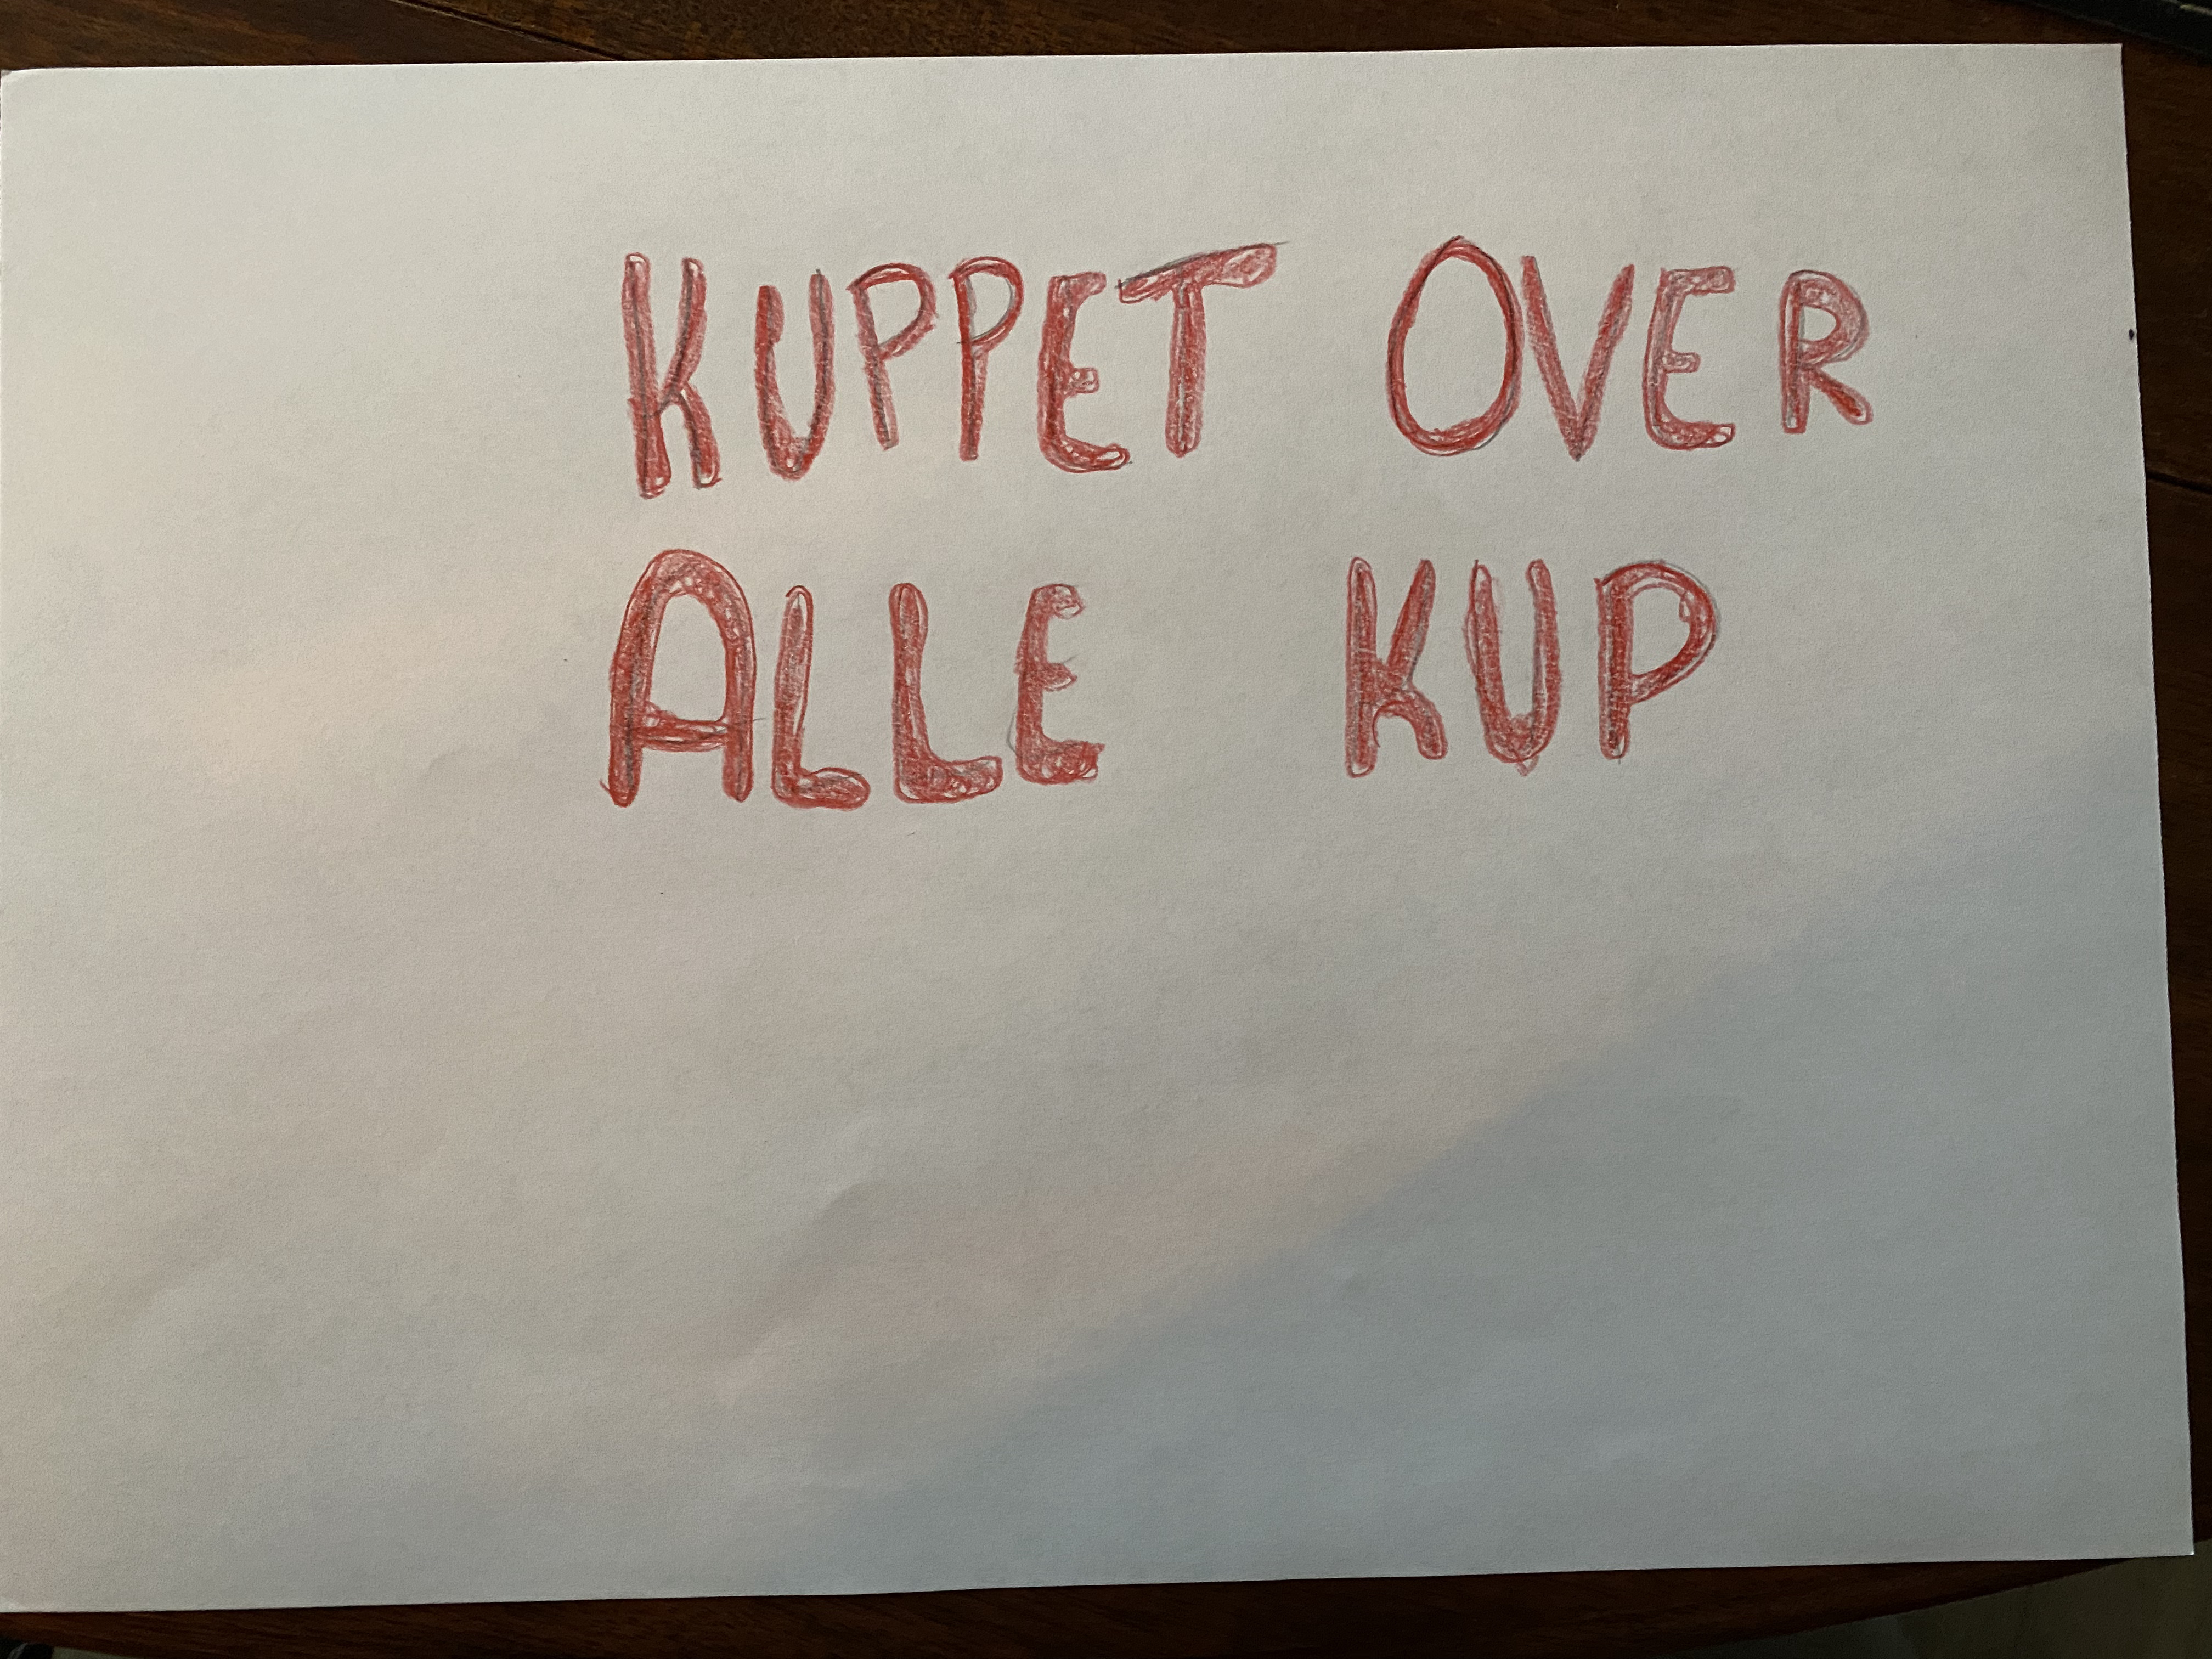 KUPPET OVER
ALLE KUP